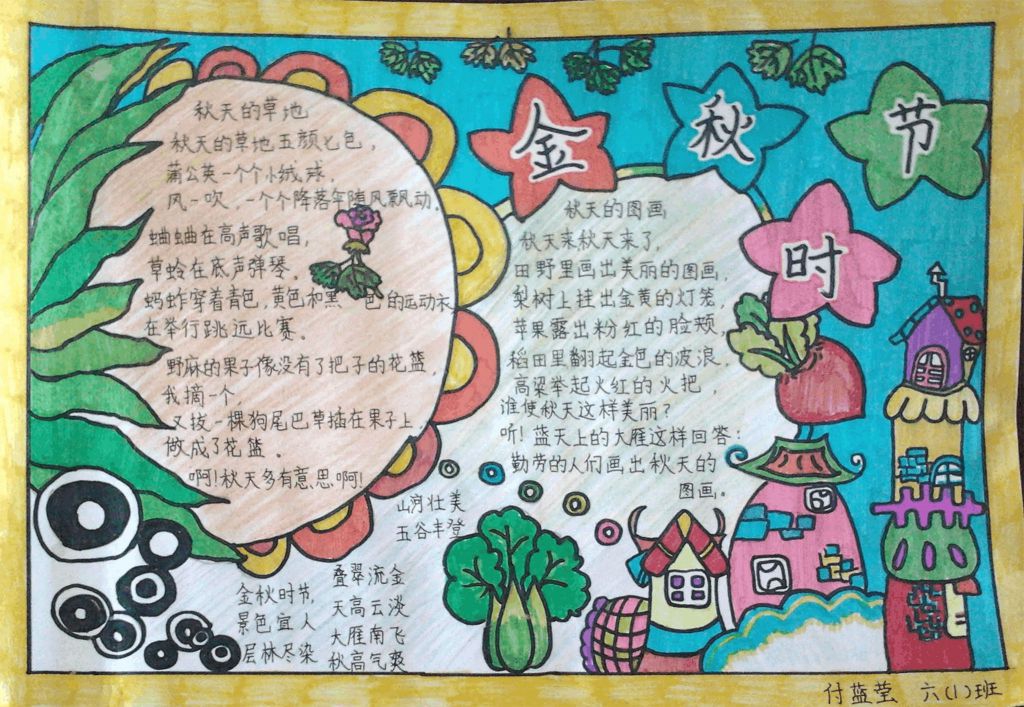 金秋节时
秋天的草地
秋天的草地五颜七色，
蒲公英一个个小绒球，
风一吹，一个个降落伞随风飘动。
蛐蛐在高声歌唱，
草蛉在底声弹琴。
蚂蚱穿着青色，黄色和黑色的运动衣
在举行跳远比赛。
野麻的果子像没有了把子的花篮，
我摘一个，
又拔一棵狗尾巴草插在果子上，
做成了花篮。
啊！秋天多有意思啊！
秋天的图画
秋天来秋天来了，
田野里画出美丽的图画，
梨树上挂出金黄的灯笼，
苹果露出粉红的脸颊，
稻田里翻起金色的波浪，
高粱举起火红的火把，
谁使秋天这样美丽？
听！蓝天上的大雁这样回答：
勤劳的人们画出秋天的
图画。
山河壮美
五谷丰登
叠翠流金
天高云淡
大雁南飞
秋高气爽
金秋时节
景色宜人
层林尽染
付蓝莹 六(1)班